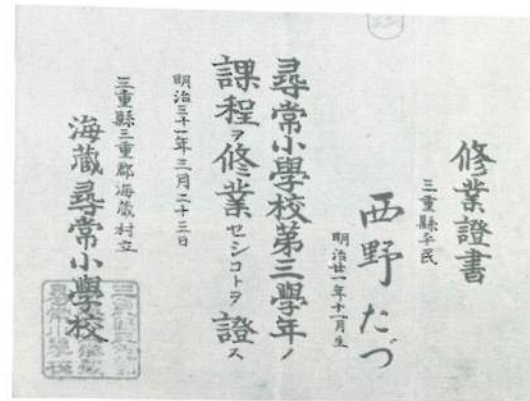 修業證書
三重縣平民
西野たづ
明治廿一年十一月生
尋常小學校第三學年ノ
課程ヲ修業セシコトヲ證ス
明治三十一年三月二十三日
三重縣三重郡海蔵村立
海蔵尋常小學校